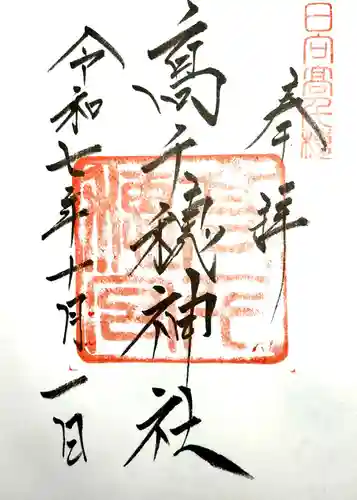 日向高千穂
奉拝
高千穂神社
令和七年十月一日